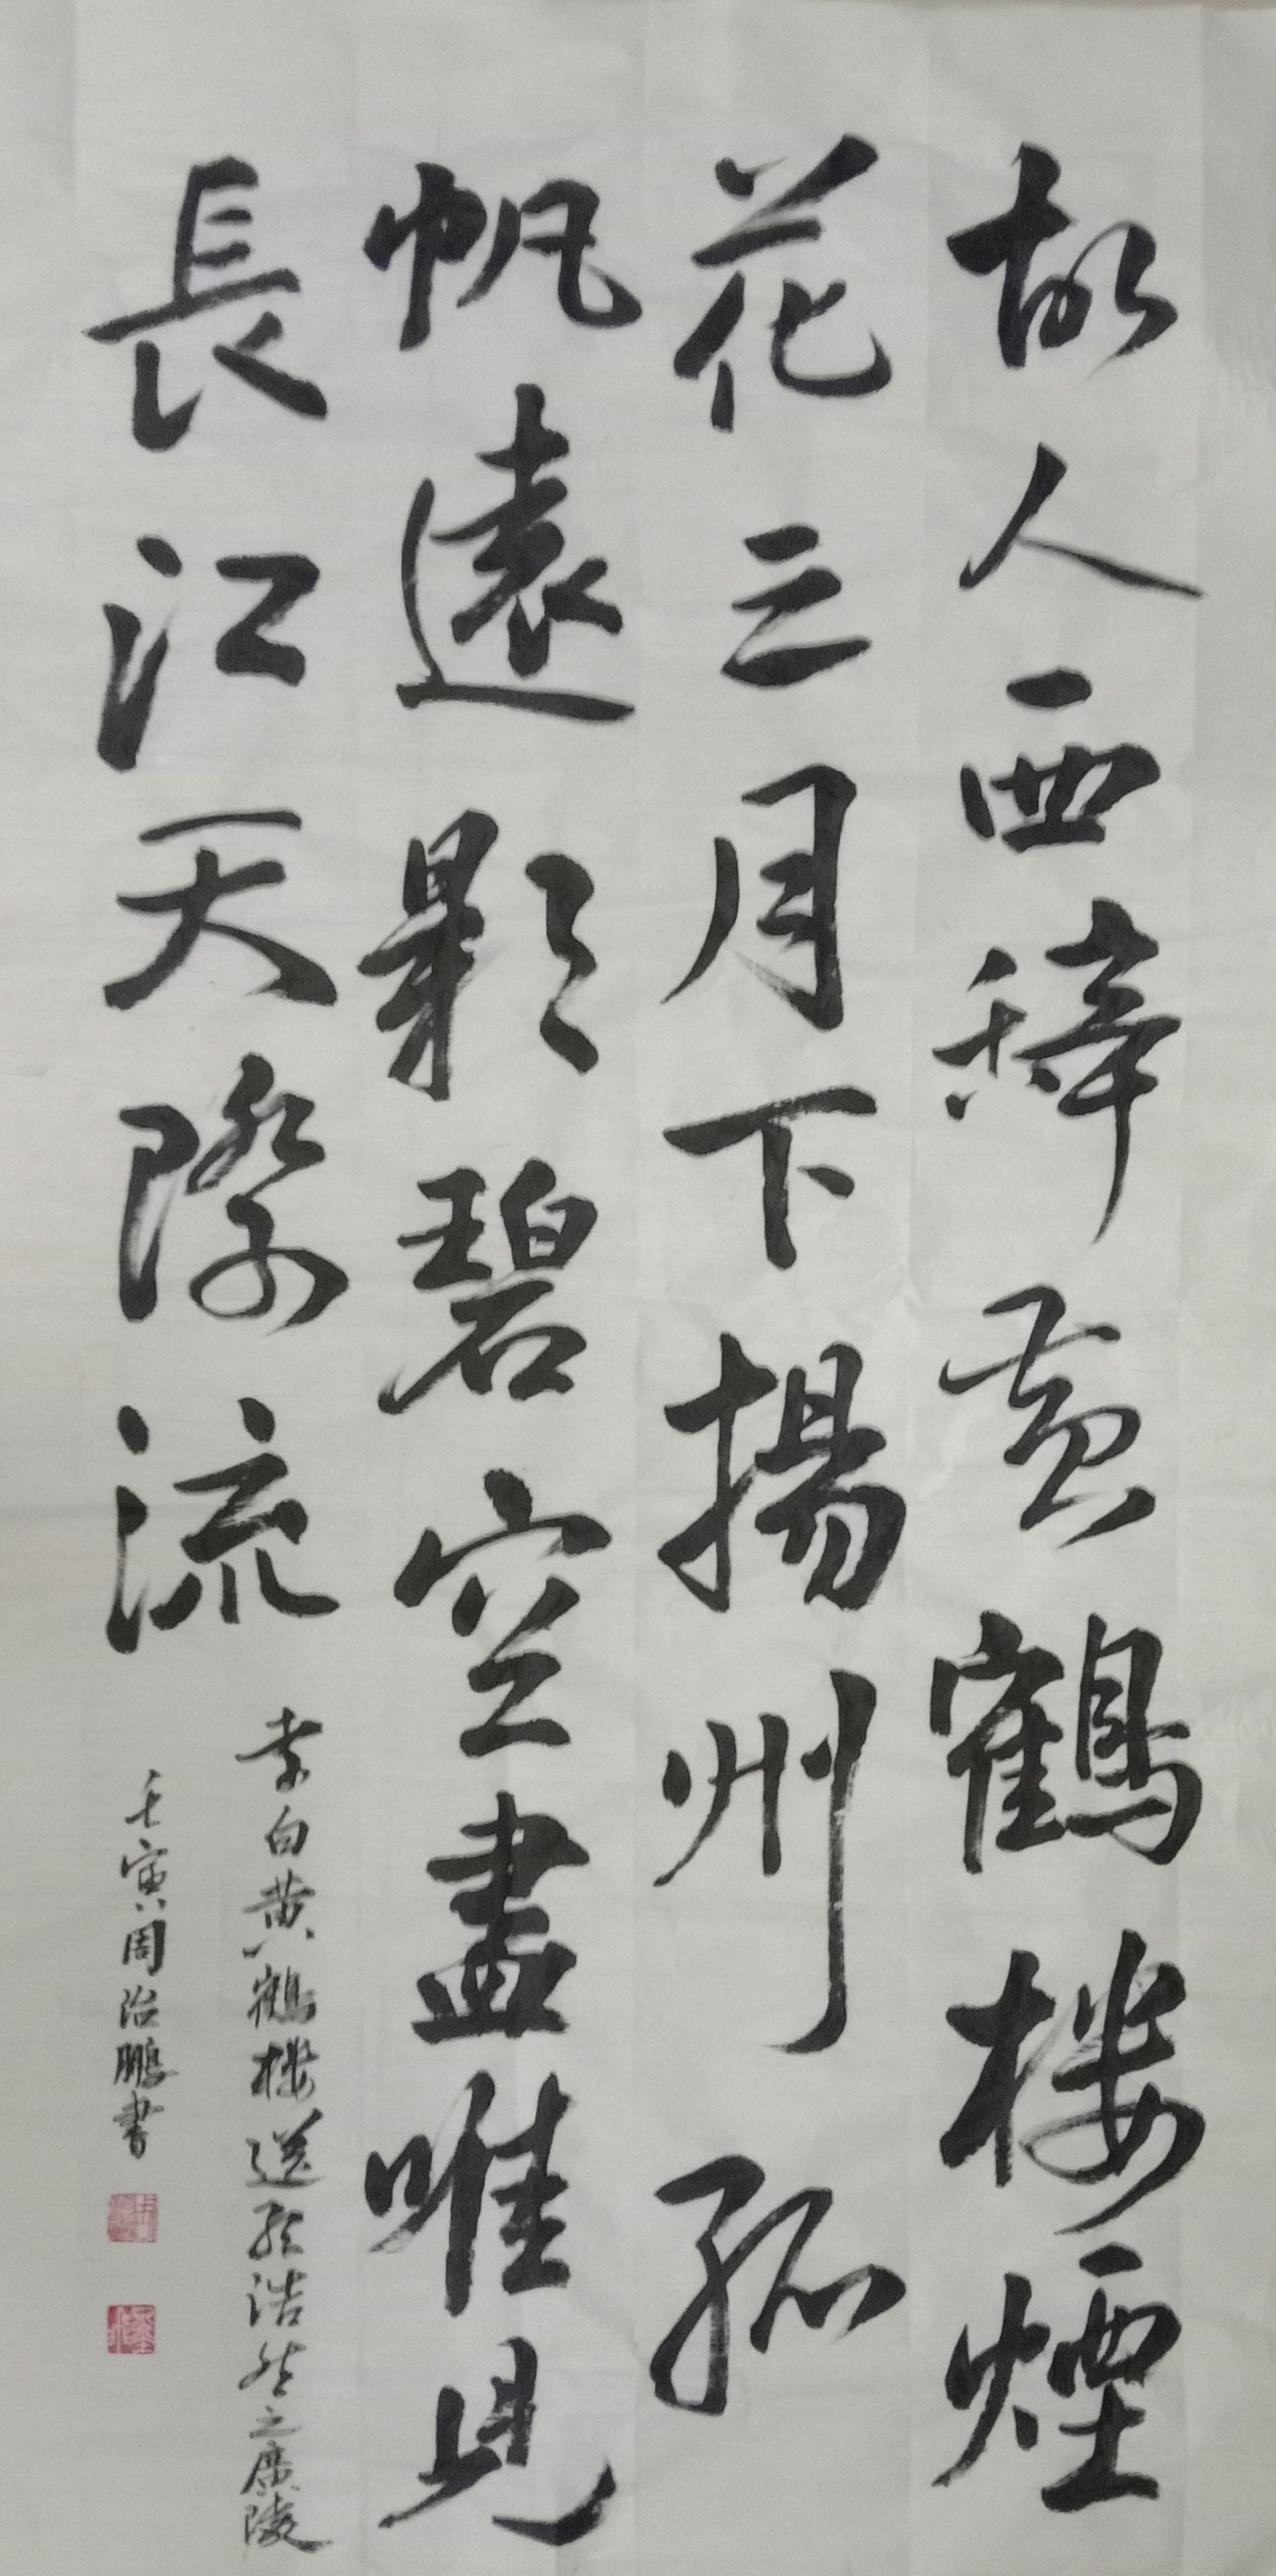 故人西辤黄鶴楼煙
花三月下揚州孤
帆遠影碧空盡唯見
長江天際流
李白黄鶴樓送孟浩然之廣陵
壬寅周治鵬書